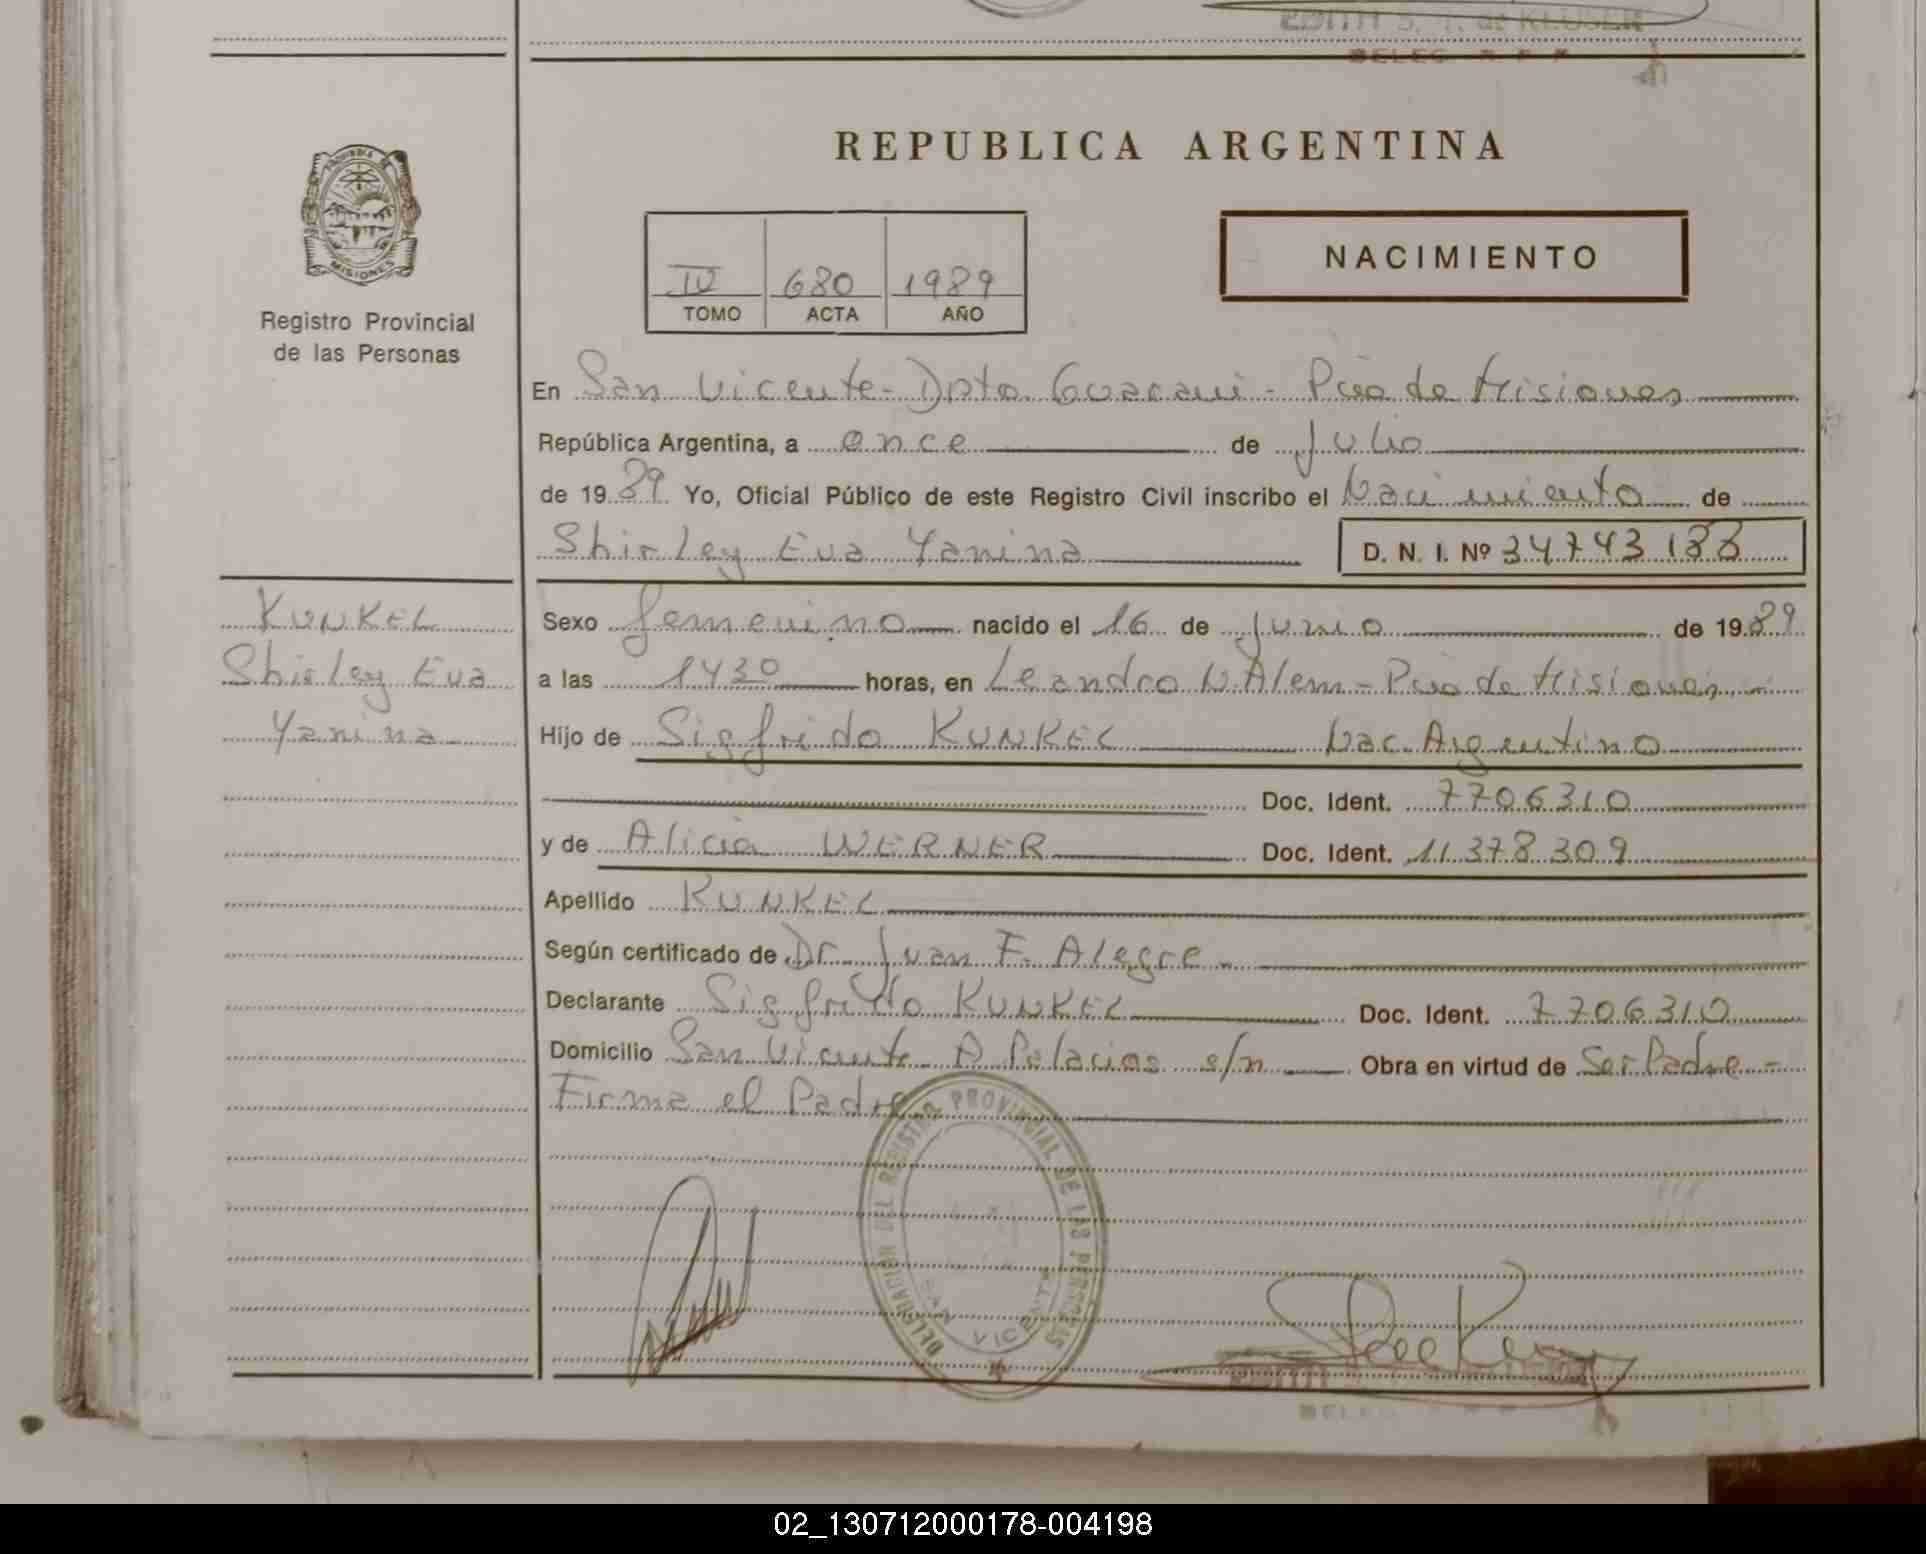 EDITH S. T. de KLUSER
DELEG R P P
REPUBLICA ARGENTINA
PROVINCIA DE
MISIONES
Registro Provincial
de las Personas
IV 680 1989
TOMO ACTA AÑO
NACIMIENTO
En San Vicente - Dpto Guaraní - Pcia de Misiones
República Argentina, a once de Julio
de 1989 Yo, Oficial Público de este Registro Civil inscribo el Nacimiento de
Shirley Eva Yanina D. N. I. Nº 34743188
KUNKEL
Shirley Eva
Yanina
Sexo femenino nacido el 16 de Junio de 1989
a las 1430 horas, en Leandro N. Alem - Pcia de Misiones
Hijo de Sigfrido KUNKEL Nac. Argentino
Doc. Ident. 7706310
y de Alicia WERNER Doc. Ident. 11378309
Apellido KUNKEL
Según certificado de Dr. Juan F. Alegre
Declarante Sigfrido KUNKEL Doc. Ident. 7706310
Domicilio San Vicente A Palacios s/n Obra en virtud de Ser Padre -
Firma el Padre
DELEGACION DEL REGISTRO PROVINCIAL DE LAS PERSONAS
SAN VICENTE
EDITH
DELEG
02_130712000178-004198